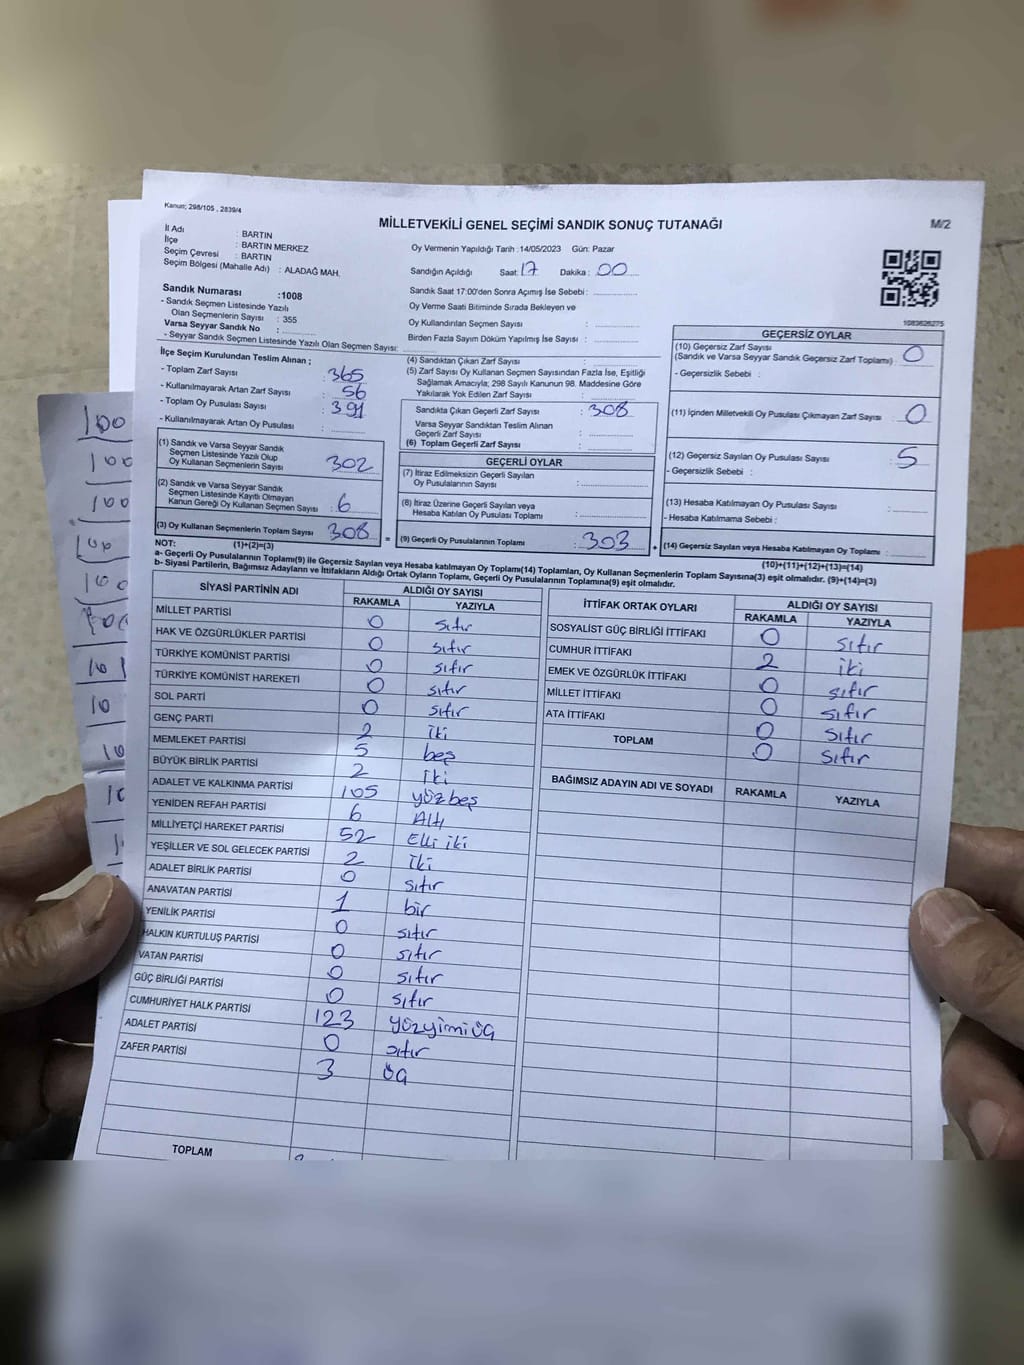 Kanun; 298/105 , 2839/4
MİLLETVEKİLİ GENEL SEÇİMİ SANDIK SONUÇ TUTANAĞI
M/2
İl Adı : BARTIN
İlçe : BARTIN MERKEZ
Seçim Çevresi : BARTIN
Seçim Bölgesi (Mahalle Adı) : ALADAĞ MAH.
Oy Vermenin Yapıldığı Tarih :14/05/2023 Gün: Pazar
Sandığın Açıldığı Saat: 17 Dakika : 00
Sandık Saat 17:00'den Sonra Açımış İse Sebebi :
Oy Verme Saati Bitiminde Sırada Bekleyen ve
Oy Kullandırılan Seçmen Sayısı :
Birden Fazla Sayım Döküm Yapılmış İse Sayısı :
1083626275
Sandık Numarası :1008
- Sandık Seçmen Listesinde Yazılı
Olan Seçmenlerin Sayısı : 355
Varsa Seyyar Sandık No :
- Seyyar Sandık Seçmen Listesinde Yazılı Olan Seçmen Sayısı:
İlçe Seçim Kurulundan Teslim Alınan ;
- Toplam Zarf Sayısı : 365
- Kullanılmayarak Artan Zarf Sayısı : 56
- Toplam Oy Pusulası Sayısı : 391
- Kullanılmayarak Artan Oy Pusulası :
(1) Sandık ve Varsa Seyyar Sandık
Seçmen Listesinde Yazılı Olup
Oy Kullanan Seçmenlerin Sayısı : 302
(2) Sandık ve Varsa Seyyar Sandık
Seçmen Listesinde Kayıtlı Olmayan
Kanun Gereği Oy Kullanan Seçmen Sayısı : 6
(3) Oy Kullanan Seçmenlerin Toplam Sayısı : 308
(1)+(2)=(3)
(4) Sandıktan Çıkan Zarf Sayısı :
(5) Zarf Sayısı Oy Kullanan Seçmen Sayısından Fazla İse, Eşitliği
Sağlamak Amacıyla; 298 Sayılı Kanunun 98. Maddesine Göre
Yakılarak Yok Edilen Zarf Sayısı :
Sandıkta Çıkan Geçerli Zarf Sayısı : 308
Varsa Seyyar Sandıktan Teslim Alınan
Geçerli Zarf Sayısı :
(6) Toplam Geçerli Zarf Sayısı :
GEÇERLİ OYLAR
(7) İtiraz Edilmeksizin Geçerli Sayılan
Oy Pusulalarının Sayısı :
(8) İtiraz Üzerine Geçerli Sayılan veya
Hesaba Katılan Oy Pusulası Toplamı :
= (9) Geçerli Oy Pusulalarının Toplamı : 303
GEÇERSİZ OYLAR
(10) Geçersiz Zarf Sayısı
(Sandık ve Varsa Seyyar Sandık Geçersiz Zarf Toplamı) : 0
- Geçersizlik Sebebi :
(11) İçinden Milletvekili Oy Pusulası Çıkmayan Zarf Sayısı : 0
(12) Geçersiz Sayılan Oy Pusulası Sayısı : 5
- Geçersizlik Sebebi :
(13) Hesaba Katılmayan Oy Pusulası Sayısı :
- Hesaba Katılmama Sebebi :
+ (14) Geçersiz Sayılan veya Hesaba Katılmayan Oy Toplamı :
(10)+(11)+(12)+(13)=(14)
NOT:
a- Geçerli Oy Pusulalarının Toplamı(9) ile Geçersiz Sayılan veya Hesaba katılmayan Oy Toplamı(14) Toplamları, Oy Kullanan Seçmenlerin Toplam Sayısına(3) eşit olmalıdır. (9)+(14)=(3)
b- Siyasi Partilerin, Bağımsız Adayların ve İttifakların Aldığı Ortak Oyların Toplamı, Geçerli Oy Pusulalarının Toplamına(9) eşit olmalıdır.
SİYASİ PARTİNİN ADI ALDIĞI OY SAYISI
RAKAMLA YAZIYLA
MİLLET PARTİSİ 0 sıfır
HAK VE ÖZGÜRLÜKLER PARTİSİ 0 sıfır
TÜRKİYE KOMÜNİST PARTİSİ 0 sıfır
TÜRKİYE KOMÜNİST HAREKETİ 0 sıfır
SOL PARTİ 0 sıfır
GENÇ PARTİ 2 iki
MEMLEKET PARTİSİ 5 beş
BÜYÜK BİRLİK PARTİSİ 2 iki
ADALET VE KALKINMA PARTİSİ 105 yüzbeş
YENİDEN REFAH PARTİSİ 6 Altı
MİLLİYETÇİ HAREKET PARTİSİ 52 Elli iki
YEŞİLLER VE SOL GELECEK PARTİSİ 2 iki
ADALET BİRLİK PARTİSİ 0 sıfır
ANAVATAN PARTİSİ 1 bir
YENİLİK PARTİSİ 0 sıfır
HALKIN KURTULUŞ PARTİSİ 0 sıfır
VATAN PARTİSİ 0 sıfır
GÜÇ BİRLİĞİ PARTİSİ 0 sıfır
CUMHURİYET HALK PARTİSİ 123 yüzyimiüç
ADALET PARTİSİ 0 sıfır
ZAFER PARTİSİ 3 üç
TOPLAM
İTTİFAK ORTAK OYLARI ALDIĞI OY SAYISI
RAKAMLA YAZIYLA
SOSYALİST GÜÇ BİRLİĞİ İTTİFAKI 0 sıfır
CUMHUR İTTİFAKI 2 iki
EMEK VE ÖZGÜRLÜK İTTİFAKI 0 sıfır
MİLLET İTTİFAKI 0 sıfır
ATA İTTİFAKI 0 sıfır
TOPLAM 0 sıfır
BAĞIMSIZ ADAYIN ADI VE SOYADI RAKAMLA YAZIYLA
100
100
100
100
100